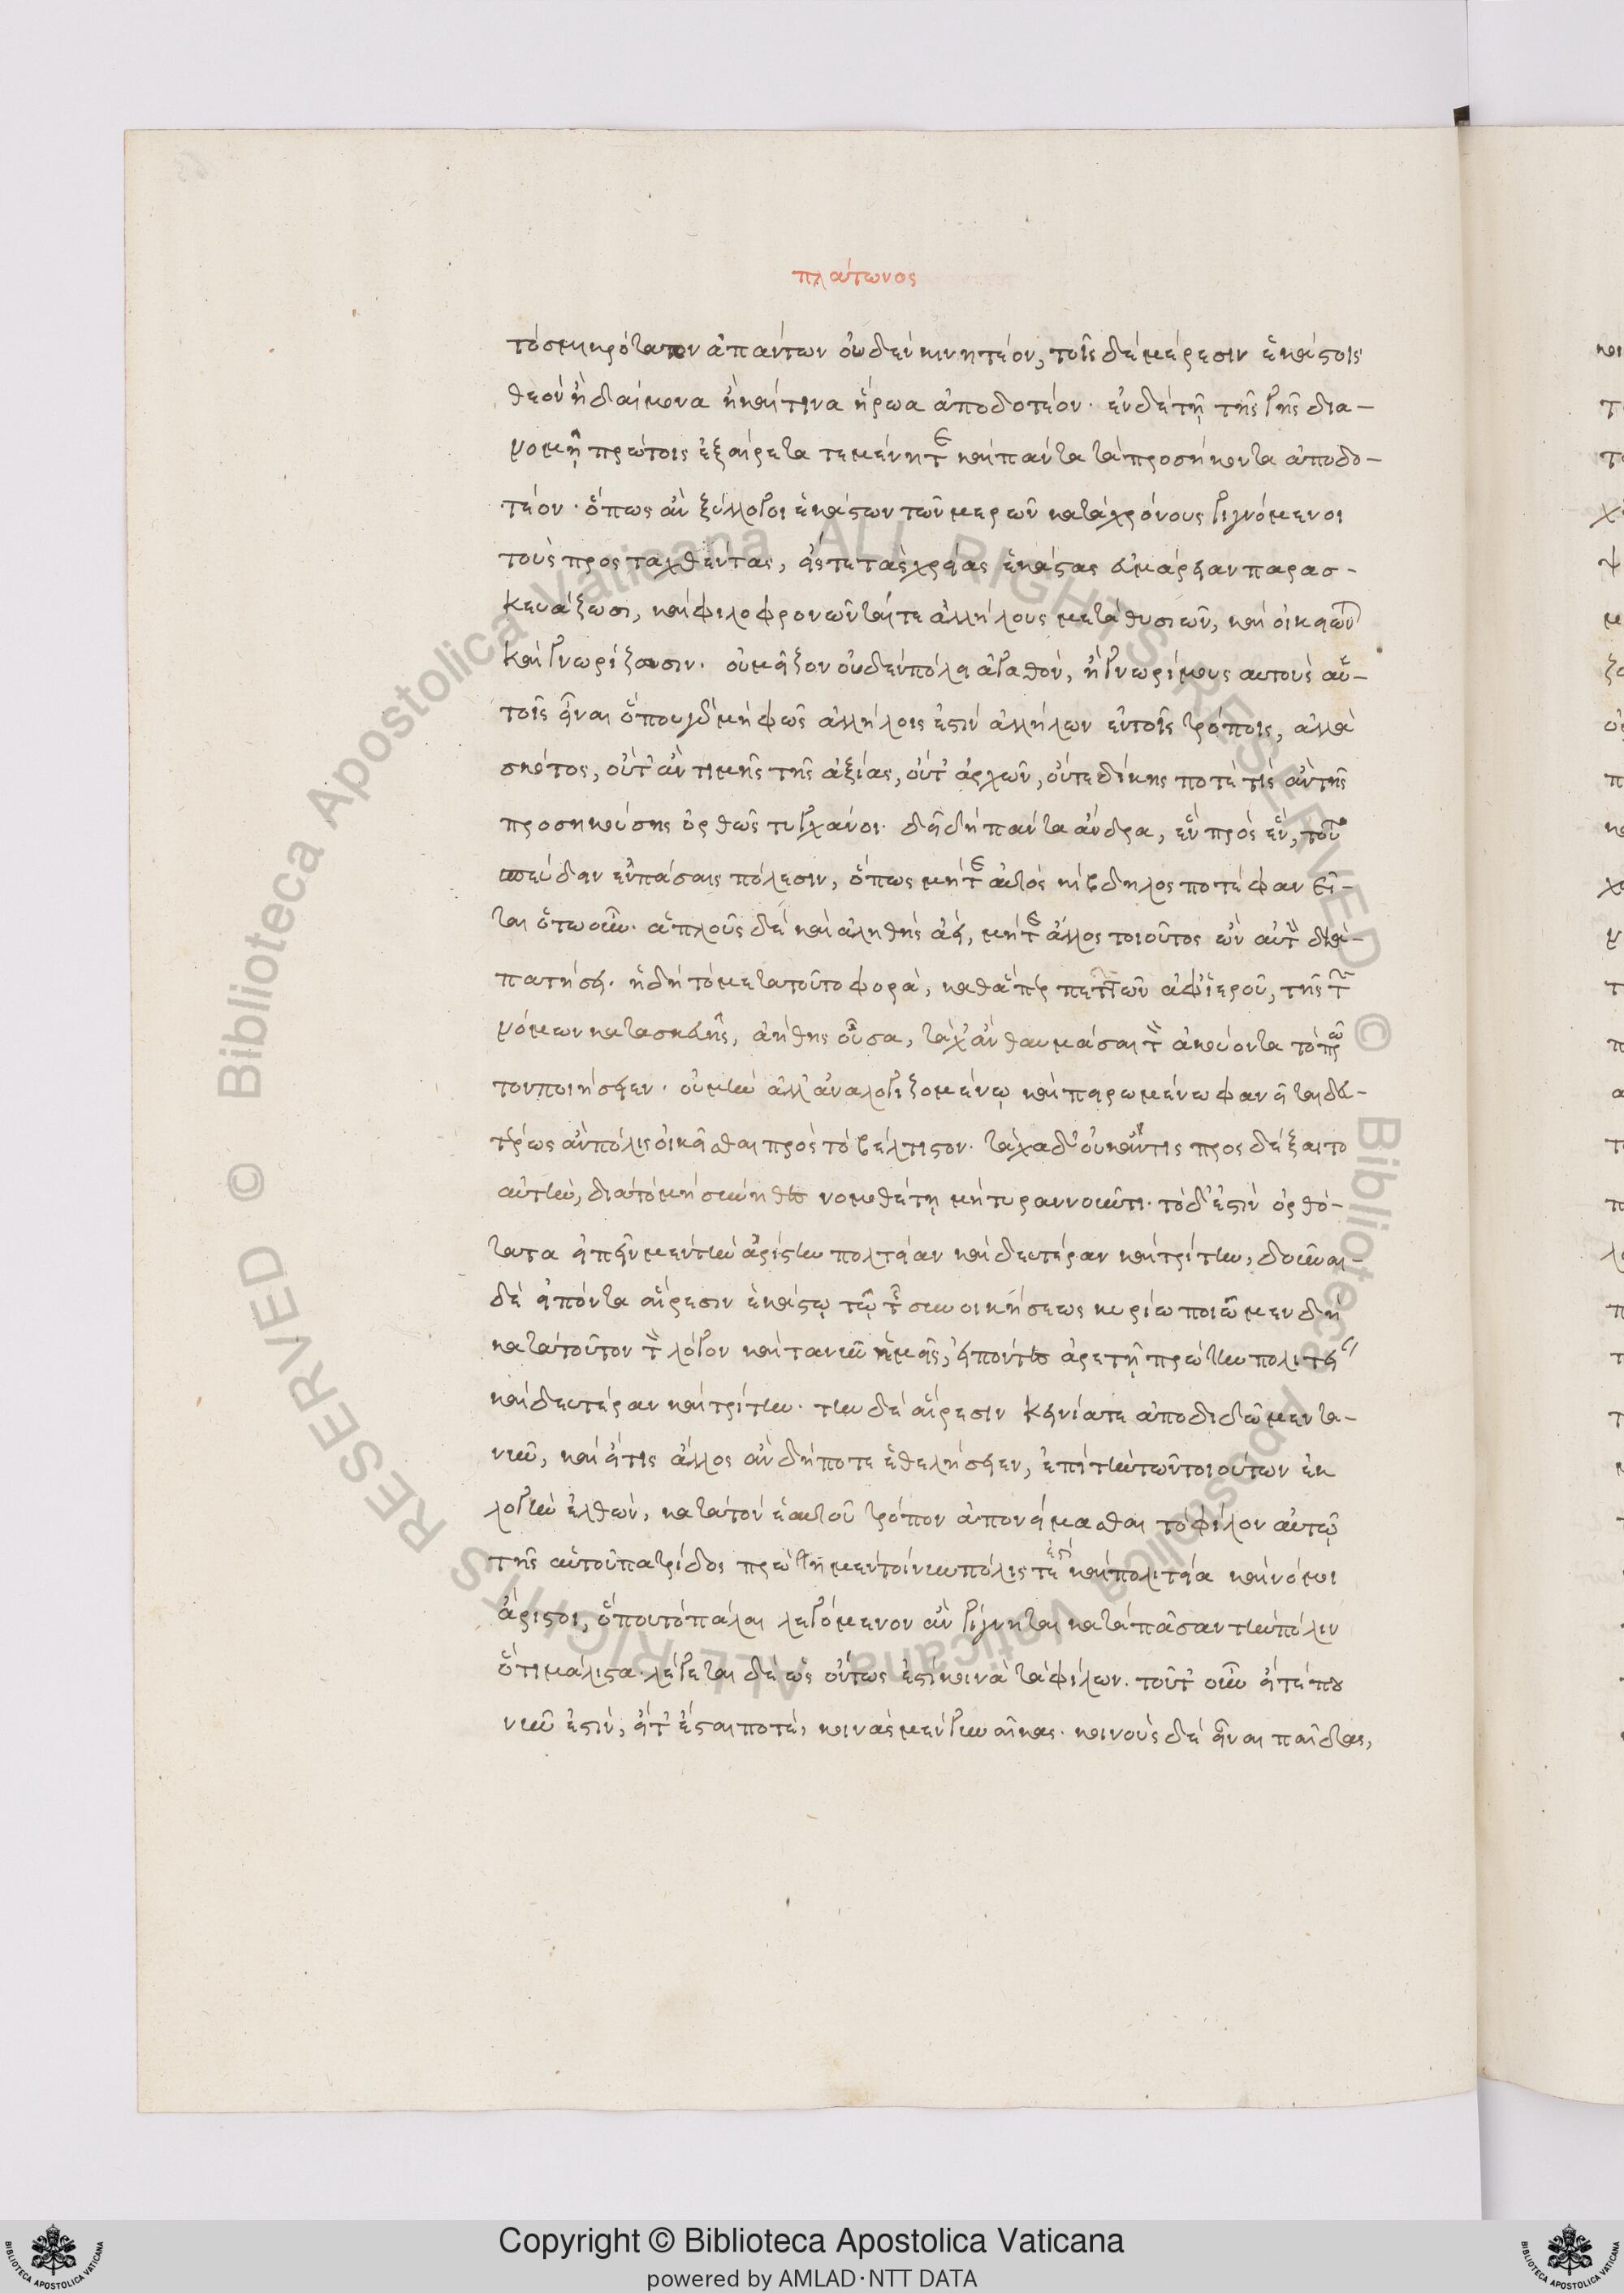 πλάτωνος
τὸ σμικρότατον ἁπάντων οὐδὲν κινητέον, τοῖς δὲ μέρεσιν ἑκάστοις
θεὸν ἢ δαίμονα ἢ καί τινα ἥρωα ἀποδοτέον· ἐν δὲ τῇ τῆς γῆς δια-
νομῇ πρώτοις ἐξαίρετα τεμένη τε καὶ πάντα τὰ προσήκοντα ἀποδο-
τέον· ὅπως ἂν ξύλλογοι ἑκάστων τῶν μερῶν κατὰ χρόνους γιγνόμενοι
τοὺς προσταχθέντας, εἴς τε τὰς χρείας ἑκάστας εὐμάρειαν παρασ-
κευάζωσι, καὶ φιλοφρονῶνταί τε ἀλλήλους μετὰ θυσιῶν, καὶ οἰκειῶν
καὶ γνωρίζωσιν· οὗ μεῖζον οὐδὲν πόλει ἀγαθόν, ἢ γνωρίμους αὐτοὺς αὑ-
τοῖς εἶναι ὅπου γὰρ μὴ φῶς ἀλλήλοις ἐστὶν ἀλλήλων ἐν τοῖς τρόποις, ἀλλὰ
σκότος, οὔτ' ἂν τιμῆς τῆς ἀξίας, οὔτ' ἀρχῶν, οὔτε δίκης ποτέ τις ἂν τῆς
προσηκούσης ὀρθῶς τυγχάνοι· δεῖ δὴ πάντα ἄνδρα, ἓν πρὸς ἕν, τοῦτο
σπεύδειν ἐν πάσαις πόλεσιν, ὅπως μήτε αὐτὸς κίβδηλος ποτὲ φανεῖ-
ται ὁτῳοῦν· ἁπλοῦς δὲ καὶ ἀληθὴς ἀεί, μήτε ἄλλος τοιοῦτος ὢν αὐτὸν δια-
πατήσει· ἡ δὴ τὸ μετὰ τοῦτο φορά, καθάπερ πεττῶν ἀφ' ἱεροῦ, τῆς τῶν
νόμων κατασκευῆς, ἀήθης οὖσα, τάχ' ἂν θαυμάσαι τὸν ἀκούοντα τὸ πρῶ
τον ποιήσειεν· οὐ μὴν ἀλλ' ἀναλογιζομένῳ καὶ πειρωμένω φανεῖται δευ-
τέρως ἂν πόλις οἰκεῖσθαι πρὸς τὸ βέλτιστον· τάχα δ' οὐκ ἄν τις προσδέξαιτο
αὐτήν, διὰ τὸ μὴ σύνηθες νομοθέτῃ μὴ τυραννοῦντι· τὸ δ' ἐστὶν ὀρθό-
τατα εἰπεῖν μὲν τὴν ἀρίστην πολιτείαν καὶ δευτέραν καὶ τρίτην, δοῦναι
δὲ εἰπόντα αἵρεσιν ἑκάστῳ τῷ τῆς συνοικήσεως κυρίω ποιῶμεν δὴ
κατὰ τοῦτον τὸν λόγον καὶ τανῦν ἡμεῖς, εἰπόντες ἀρετῇ πρώτην πολιτείαν
καὶ δευτέραν καὶ τρίτην· τὴν δὲ αἵρεσιν Κλεινίᾳ τε ἀποδιδῶμεν τα-
νῦν, καὶ εἴ τις ἄλλος ἂν δήποτε ἐθελήσειεν, ἐπὶ τὴν τῶν τοιούτων ἐκ
λογὴν ἐλθών, κατὰ τὸν ἑαυτοῦ τρόπον ἀπονείμασθαι τὸ φίλον αὐτῷ
τῆς αὑτοῦ πατρίδος πρώτη μὲν τοίνυν πόλις τέ ἐστι καὶ πολιτεία καὶ νόμοι
ἄριστοι, ὅπου τὸ πάλαι λεγόμενον ἂν γίγνηται κατὰ πᾶσαν τὴν πόλιν
ὅτι μάλιστα· λέγεται δὲ ὡς ὄντως ἐστὶ κοινὰ τὰ φίλων. τοῦτ' οὖν εἴτέ που
νῦν ἐστίν, εἴτ' ἔσται ποτέ, κοινὰς μὲν γυναῖκας· κοινοὺς δὲ εἶναι παῖδας,